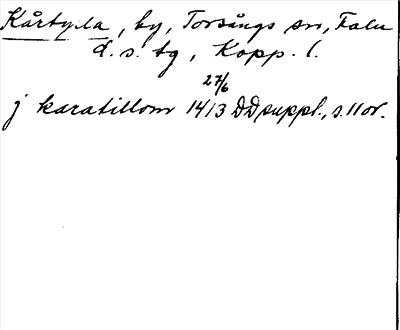 Kårtylla, by, Torsångs sn, Falu
d. s. tg, Kopp. l.
27/6
j karatillom 1413 DDsuppl., s. 11 or.